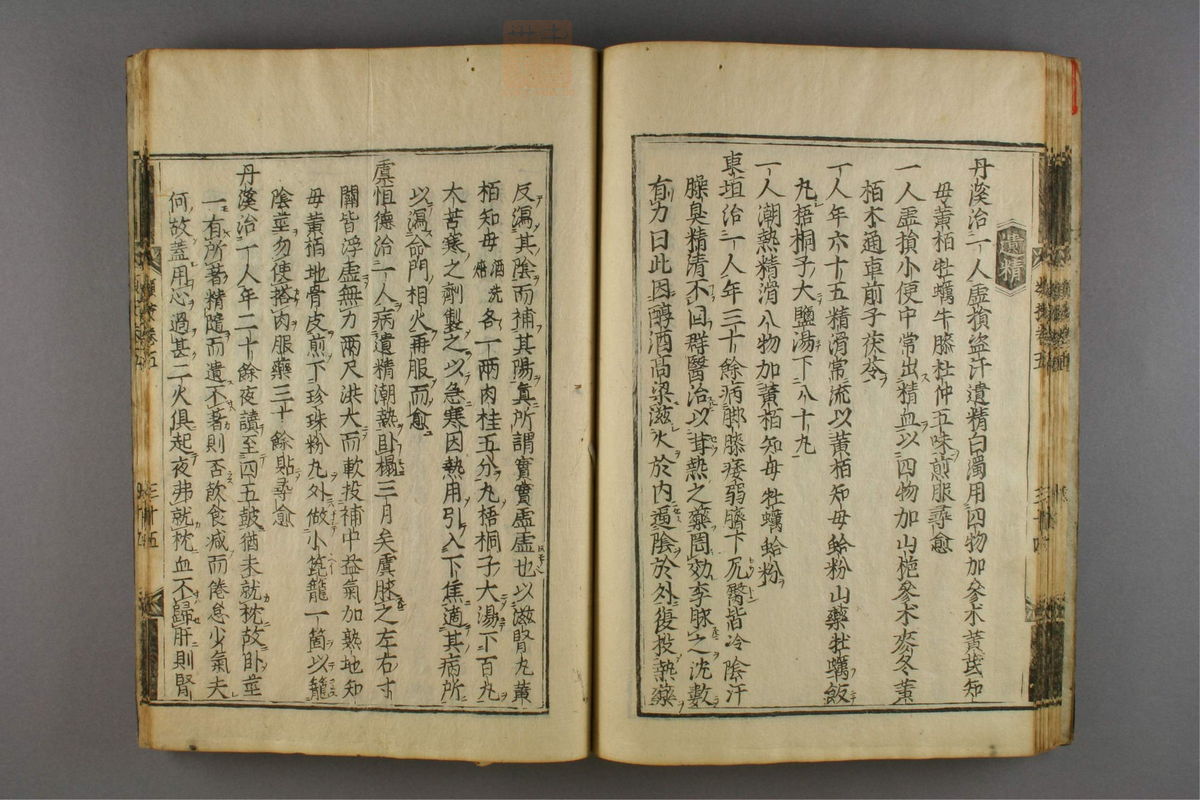 遺精
丹溪治一人虛損盜汗遺精白濁用四物加參术黃芪知
母黃栢牡蠣牛膝杜仲五味煎服尋愈
一人虛損小便中常出精血以四物加山梔參术麥冬黃
栢木通車前子茯苓
一人年六十五精滑常流以黃栢知母蛤粉山藥牡蠣飯
丸梧桐子大鹽湯下八十丸
一人潮熱精滑八物加黃栢知母牡蠣蛤粉
東垣治一人年三十餘病脚膝痿弱臍下尻臀皆冷陰汗
臊臭精清不固群醫治以茸熱之藥罔効李脉之沈數
有力曰此因醇酒高粱滋火於內逼陰於外復投熱藥
反瀉其陰而補其陽眞所謂實實虛虛也以滋腎丸黃
栢知母酒洗焙各一兩肉桂五分丸梧桐子大湯下百丸
大苦寒之劑製之以急寒因熱用引入下焦適其病所
以瀉命門相火再服而愈
虞恒德治一人病遺精潮熱卧榻三月矣虞脉之左右寸
關皆浮虛無力兩尺洪大而軟投補中益氣加熟地知
母黃栢地骨皮煎下珍珠粉丸外做小篦籠一箇以籠
陰莖勿使搭肉服藥三十餘貼尋愈
丹溪治一人年二十餘夜讀至四五鼓猶未就枕故卧莖
一有所著精隨而遺不著則否飲食减而倦怠少氣夫
何故蓋用心過甚二火俱起夜弗就枕血不歸肝則腎